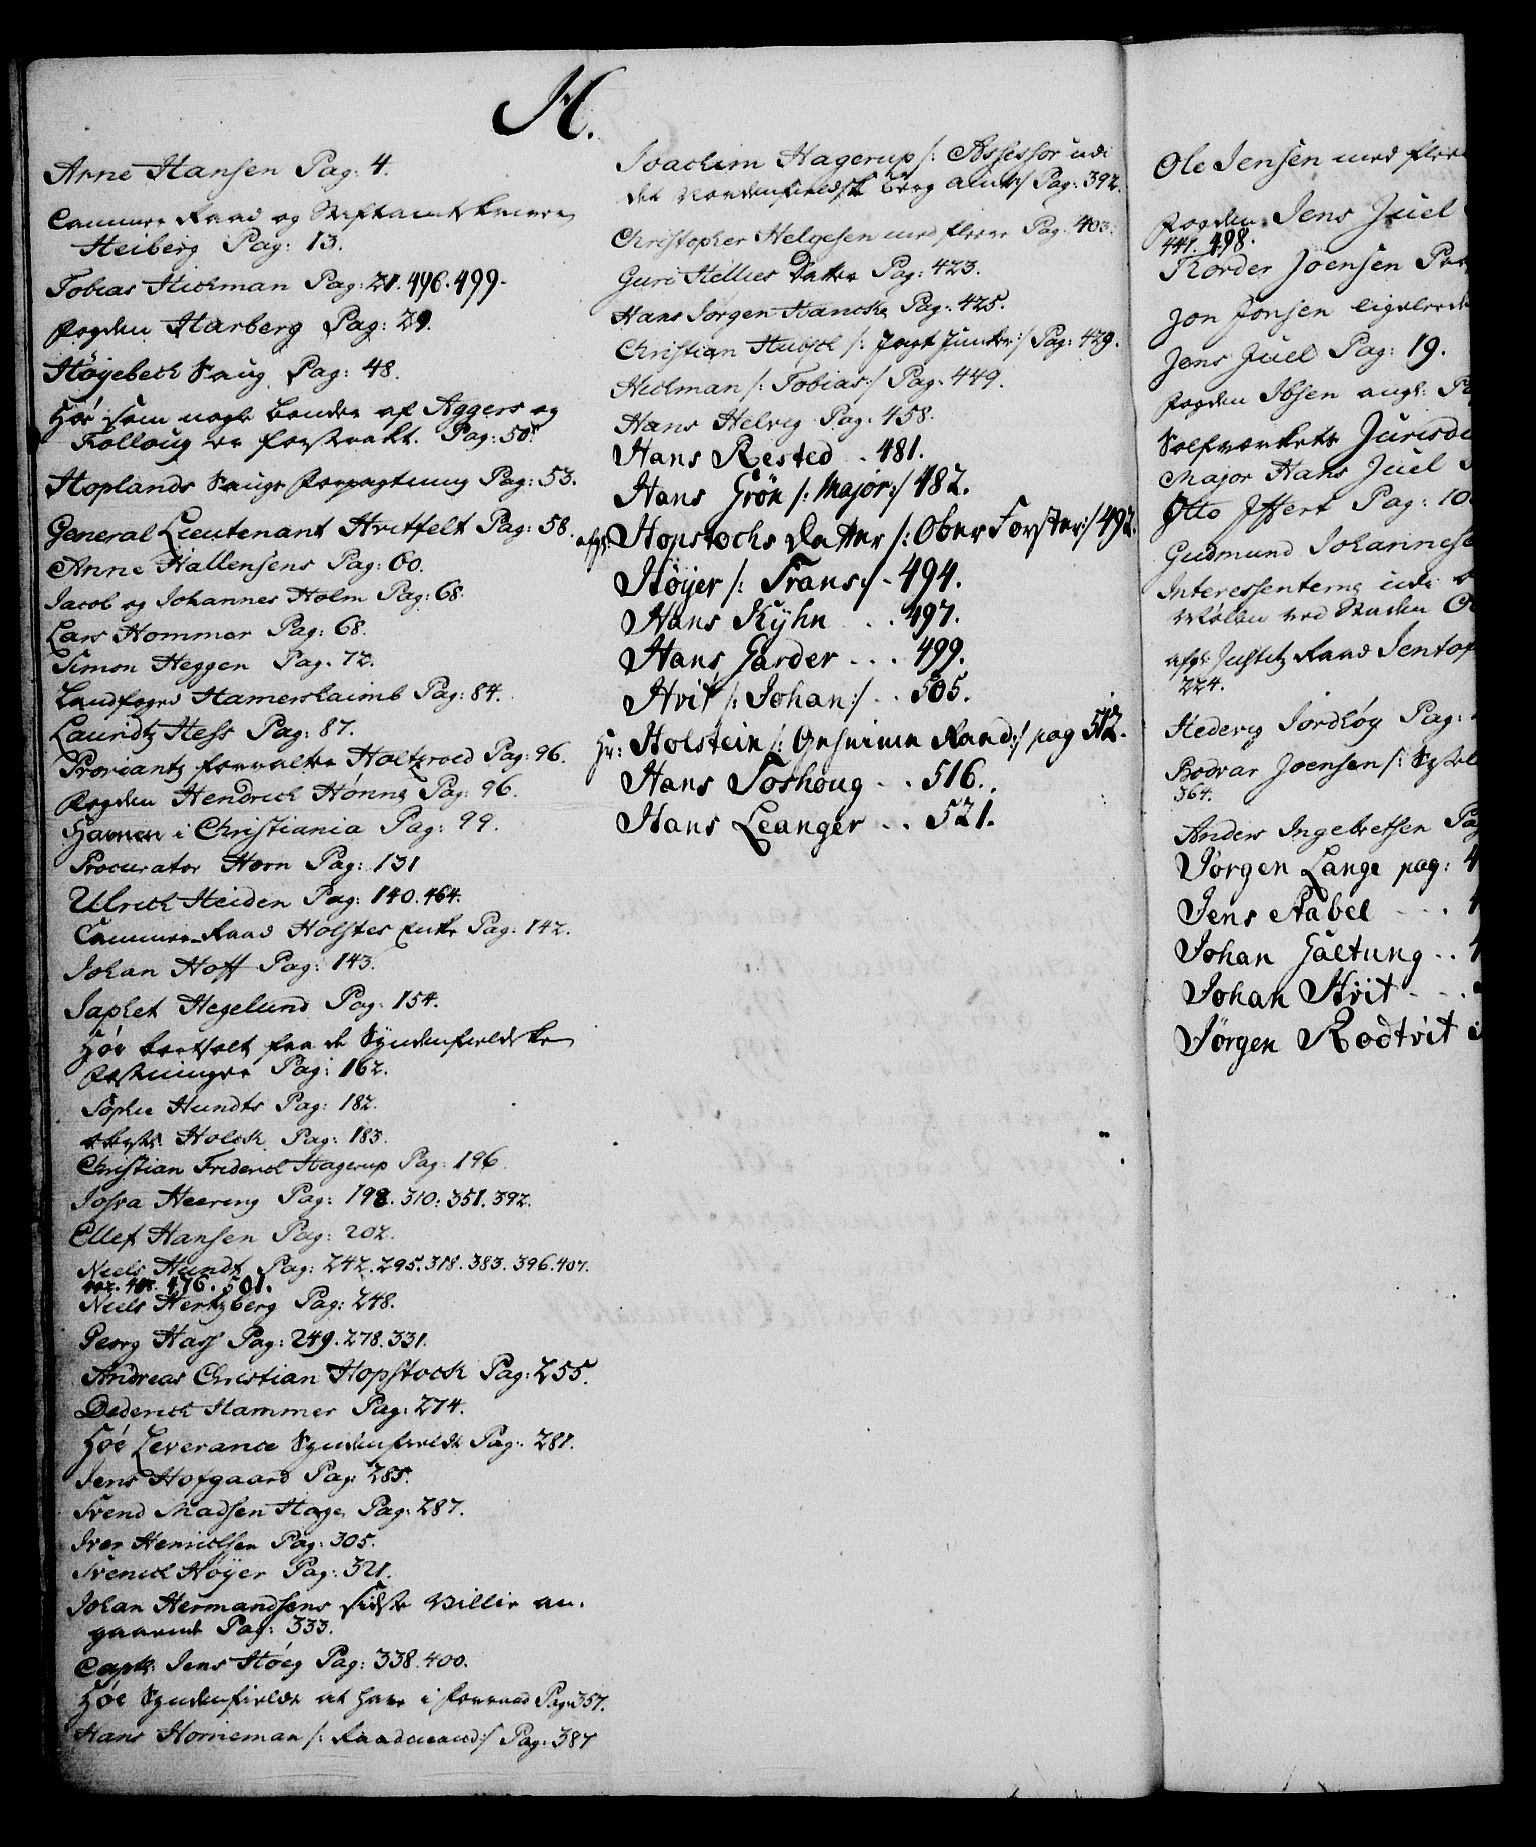 H.
Arne Hansen Pag: 4.
Cammer Raad og Stiftamtskriver
Heiberg Pag: 13.
Tobias Hickman Pag: 21. 496. 499.
fogden Harberg Pag: 29.
Høyebech Saug Pag: 48.
Höe som nogle bönder af Aggers og
Folloug er forstrakt. Pag: 50.
Hoplands Saugs forpagtning Pag: 53.
General Lieutenant Hvitfelt Pag: 58.
Anne Hallensens Pag: 60.
Jacob og Johannes Holm Pag: 68.
Lars Hommer Pag: 68.
Simon Heggen Pag. 72.
Landfoged Hamershaimb Pag: 84.
Lauridtz Hess Pag: 87.
Proviantz forvalter Holtzroed Pag: 96.
fogden Hendrich Hönne Pag: 96.
Havnen i Christiania Pag: 99.
Procurator Horn Pag: 131
Ulrich Heiden Pag: 140. 464.
Cammer-Raad Holstes Enke Pag: 142.
Johan Hoff Pag: 143.
Japhet Hegelund Pag: 154.
Höe bortsolt fra de Syndenfieldske
festninger Pag: 162.
Sophie Hundts Pag: 182.
oberst: Holck Pag: 183.
Christian Friderich Hagerup Pag: 196.
Josva Heering Pag: 198. 310: 351. 392.
Ellef Hansen Pag: 202.
Niels Hundt Pag: 242. 295. 318. 383. 396. 407.
476. 501.
Niels Hertzberg Pag: 248.
Georg Hass Pag: 249. 278. 331.
Andreas Christian Hopstock Pag: 255.
Dederich Hammer Pag: 274.
Höe Leverance Syndenfields Pag: 281.
Jens Hofgaard Pag: 285.
Svend Madsen Hage Pag: 287.
Iver Henrichsen Pag: 305.
Svenich Høyer Pag: 321.
Johan Hermandsens sidste Villie an-
gaaende Pag: 333.
Capt: Jens Höeg Pag: 338. 400.
Höe Syndenfields at have i forraad Pag: 357.
Hans Horneman /: Raadmand :/ Pag: 387
Joachim Hagerup /: Assessor udi
det Nordenfieldske berg amt :/ Pag: 392.
Christopher Helgesen med fleere Pag. 403.
Guri Hellies Datter Pag: 423.
Hans Jörgen Hancke Pag: 425.
Christian Hubsch /: Jagt Junker :/ Pag: 429.
Hickman /: Tobias :/ Pag: 449.
Hans Helvig Pag: 458.
Hans Rested . 481.
Hans Grön /: Major :/ 482.
afg: Hopstochs Datter /: Ober Forster :/ 492.
Höyer /: Frans :/ - 494.
Hans Kyhn . . . 497.
Hans Garder . . . 499.
Hvit /: Johan :/ . . 505.
Hr: Holstein /: Geheime Raad :/ pag 512.
Hans Soshoug . . 516.
Hans Leanger . . 521.
Ole Jensen med fleer
fogden Jens Juel
441. 498.
Thorder Joensen
Jon Jonsen ligeleedes
Jens Juel Pag: 19.
fogden Ibsen angl: Pa
Sølfverkets Jurisdi
Major Hans Juel
Otto Iffert Pag: 10
Gudmund Johannese
Interessenterne udi
afg: Justitz Raad Jentof
224.
Hedevig Jordhöy Pag:
Bodvar Joensen /:
364.
Anders Ingebretsen Pag
Jörgen Lange pag: 4
Jens Stabel
Johan Galtung . .
Johan Hvit
Jörgen Rodtvit